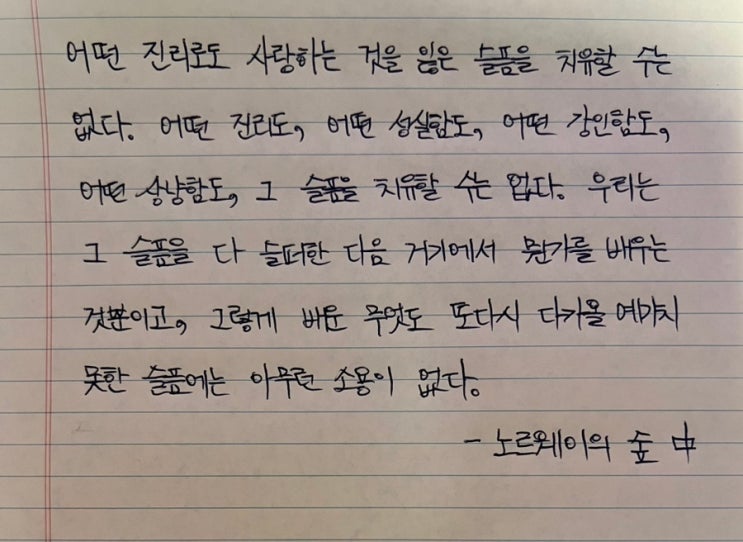 어떤 진리로도 사랑하는 것을 잃은 슬픔을 치유할 수는
없다. 어떤 진리도, 어떤 성실함도, 어떤 강인함도,
어떤 상냥함도, 그 슬픔을 치유할 수는 없다. 우리는
그 슬픔을 다 슬퍼한 다음 거기에서 뭔가를 배우는
것뿐이고, 그렇게 배운 무엇도 또다시 다가올 예기치
못한 슬픔에는 아무런 소용이 없다.
- 노르웨이의 숲 中